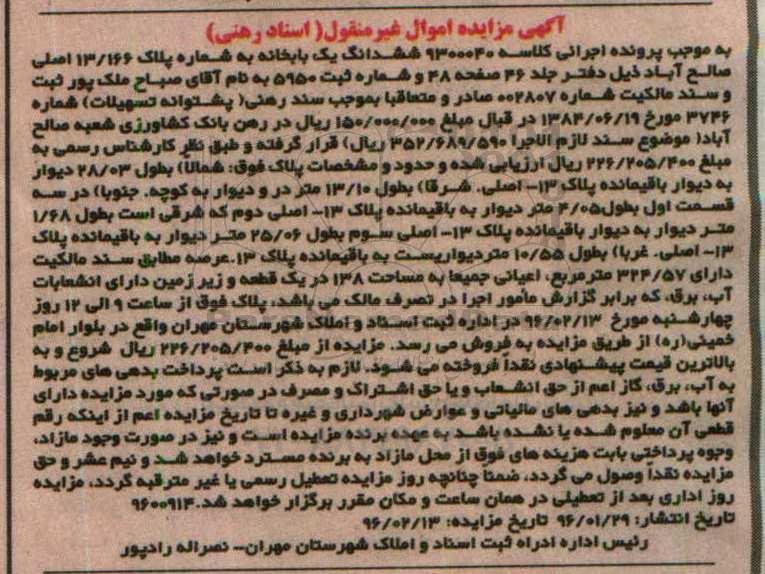 آگهی مزایده اموال غیرمنقول( اسناد رهنی)
به موجب پرونده اجرائی کلاسه ۹۳۰۰۰۴۰ ششدانگ یک بابخانه به شماره پلاک ۱۳/۱۶۶ اصلی
صالح آباد ذیل دفتر جلد ۴۶ صفحه ۴۸ و شماره ثبت ۵۹۵۰ به نام آقای صباح ملک پور ثبت
و سند مالکیت شماره ۰۰۲۸۰۷ صادر و متعاقبا بموجب سند رهنی( پشتوانه تسهیلات) شماره
۳۷۴۶ مورخ ۱۳۸۴/۰۶/۱۹ در قبال مبلغ ۱۵۰/۰۰۰/۰۰۰ ریال در رهن بانک کشاورزی شعبه صالح
آباد( موضوع سند لازم الاجرا ۳۵۲/۶۸۹/۵۹۰ ریال) قرار گرفته و طبق نظر کارشناس رسمی به
مبلغ ۲۲۶/۲۰۵/۴۰۰ ریال ارزیابی شده و حدود و مشخصات پلاک فوق: شمالاً) بطول ۲۸/۰۳ دیوار
به دیوار باقیمانده پلاک ۱۳- اصلی. شرقا) بطول ۱۳/۱۰ متر در و دیوار به کوچه. جنوبا) در سه
قسمت اول بطول۴/۰۵ متر دیوار به باقیمانده پلاک ۱۳- اصلی دوم که شرقی است بطول ۱/۶۸
متر دیوار به دیوار باقیمانده پلاک ۱۳- اصلی سوم بطول ۲۵/۰۶ متر دیوار به باقیمانده پلاک
۱۳- اصلی. غربا) بطول ۱۰/۵۵ متردیواریست به باقیمانده پلاک ۱۳.عرصه مطابق سند مالکیت
دارای ۳۲۴/۵۷ مترمربع، اعیانی جمیعا به مساحت ۱۳۸ در یک قطعه و زیر زمین دارای انشعابات
آب، برق، که برابر گزارش مأمور اجرا در تصرف مالک می باشد، پلاک فوق از ساعت ۹ الی ۱۲ روز
چهارشنبه مورخ ۹۶/۰۲/۱۳ در اداره ثبت اسناد و املاک شهرستان مهران واقع در بلوار امام
خمینی(ره) از طریق مزایده به فروش می رسد. مزایده از مبلغ ۲۲۶/۲۰۵/۴۰۰ ریال شروع و به
بالاترین قیمت پیشنهادی نقداً فروخته می شود. لازم به ذکر است پرداخت بدهی های مربوط
به آب، برق، گاز اعم از حق انشعاب و یا حق اشتراک و مصرف در صورتی که مورد مزایده دارای
آنها باشد و نیز بدهی های مالیاتی و عوارض شهرداری و غیره تا تاریخ مزایده اعم از اینکه رقم
قطعی آن معلوم شده یا نشده باشد به عهده برنده مزایده است و نیز در صورت وجود مازاد،
وجوه پرداختی بابت هزینه های فوق از محل مازاد به برنده مسترد خواهد شد و نیم عشر و حق
مزایده نقداً وصول می گردد، ضمناً چنانچه روز مزایده تعطیل رسمی یا غیر مترقبه گردد، مزایده
روز اداری بعد از تعطیلی در همان ساعت و مکان مقرر برگزار خواهد شد.۹۶۰۰۹۱۴
تاریخ انتشار: ۹۶/۰۱/۲۹ تاریخ مزایده: ۹۶/۰۲/۱۳
رئیس اداره ادراه ثبت اسناد و املاک شهرستان مهران- نصراله رادپور